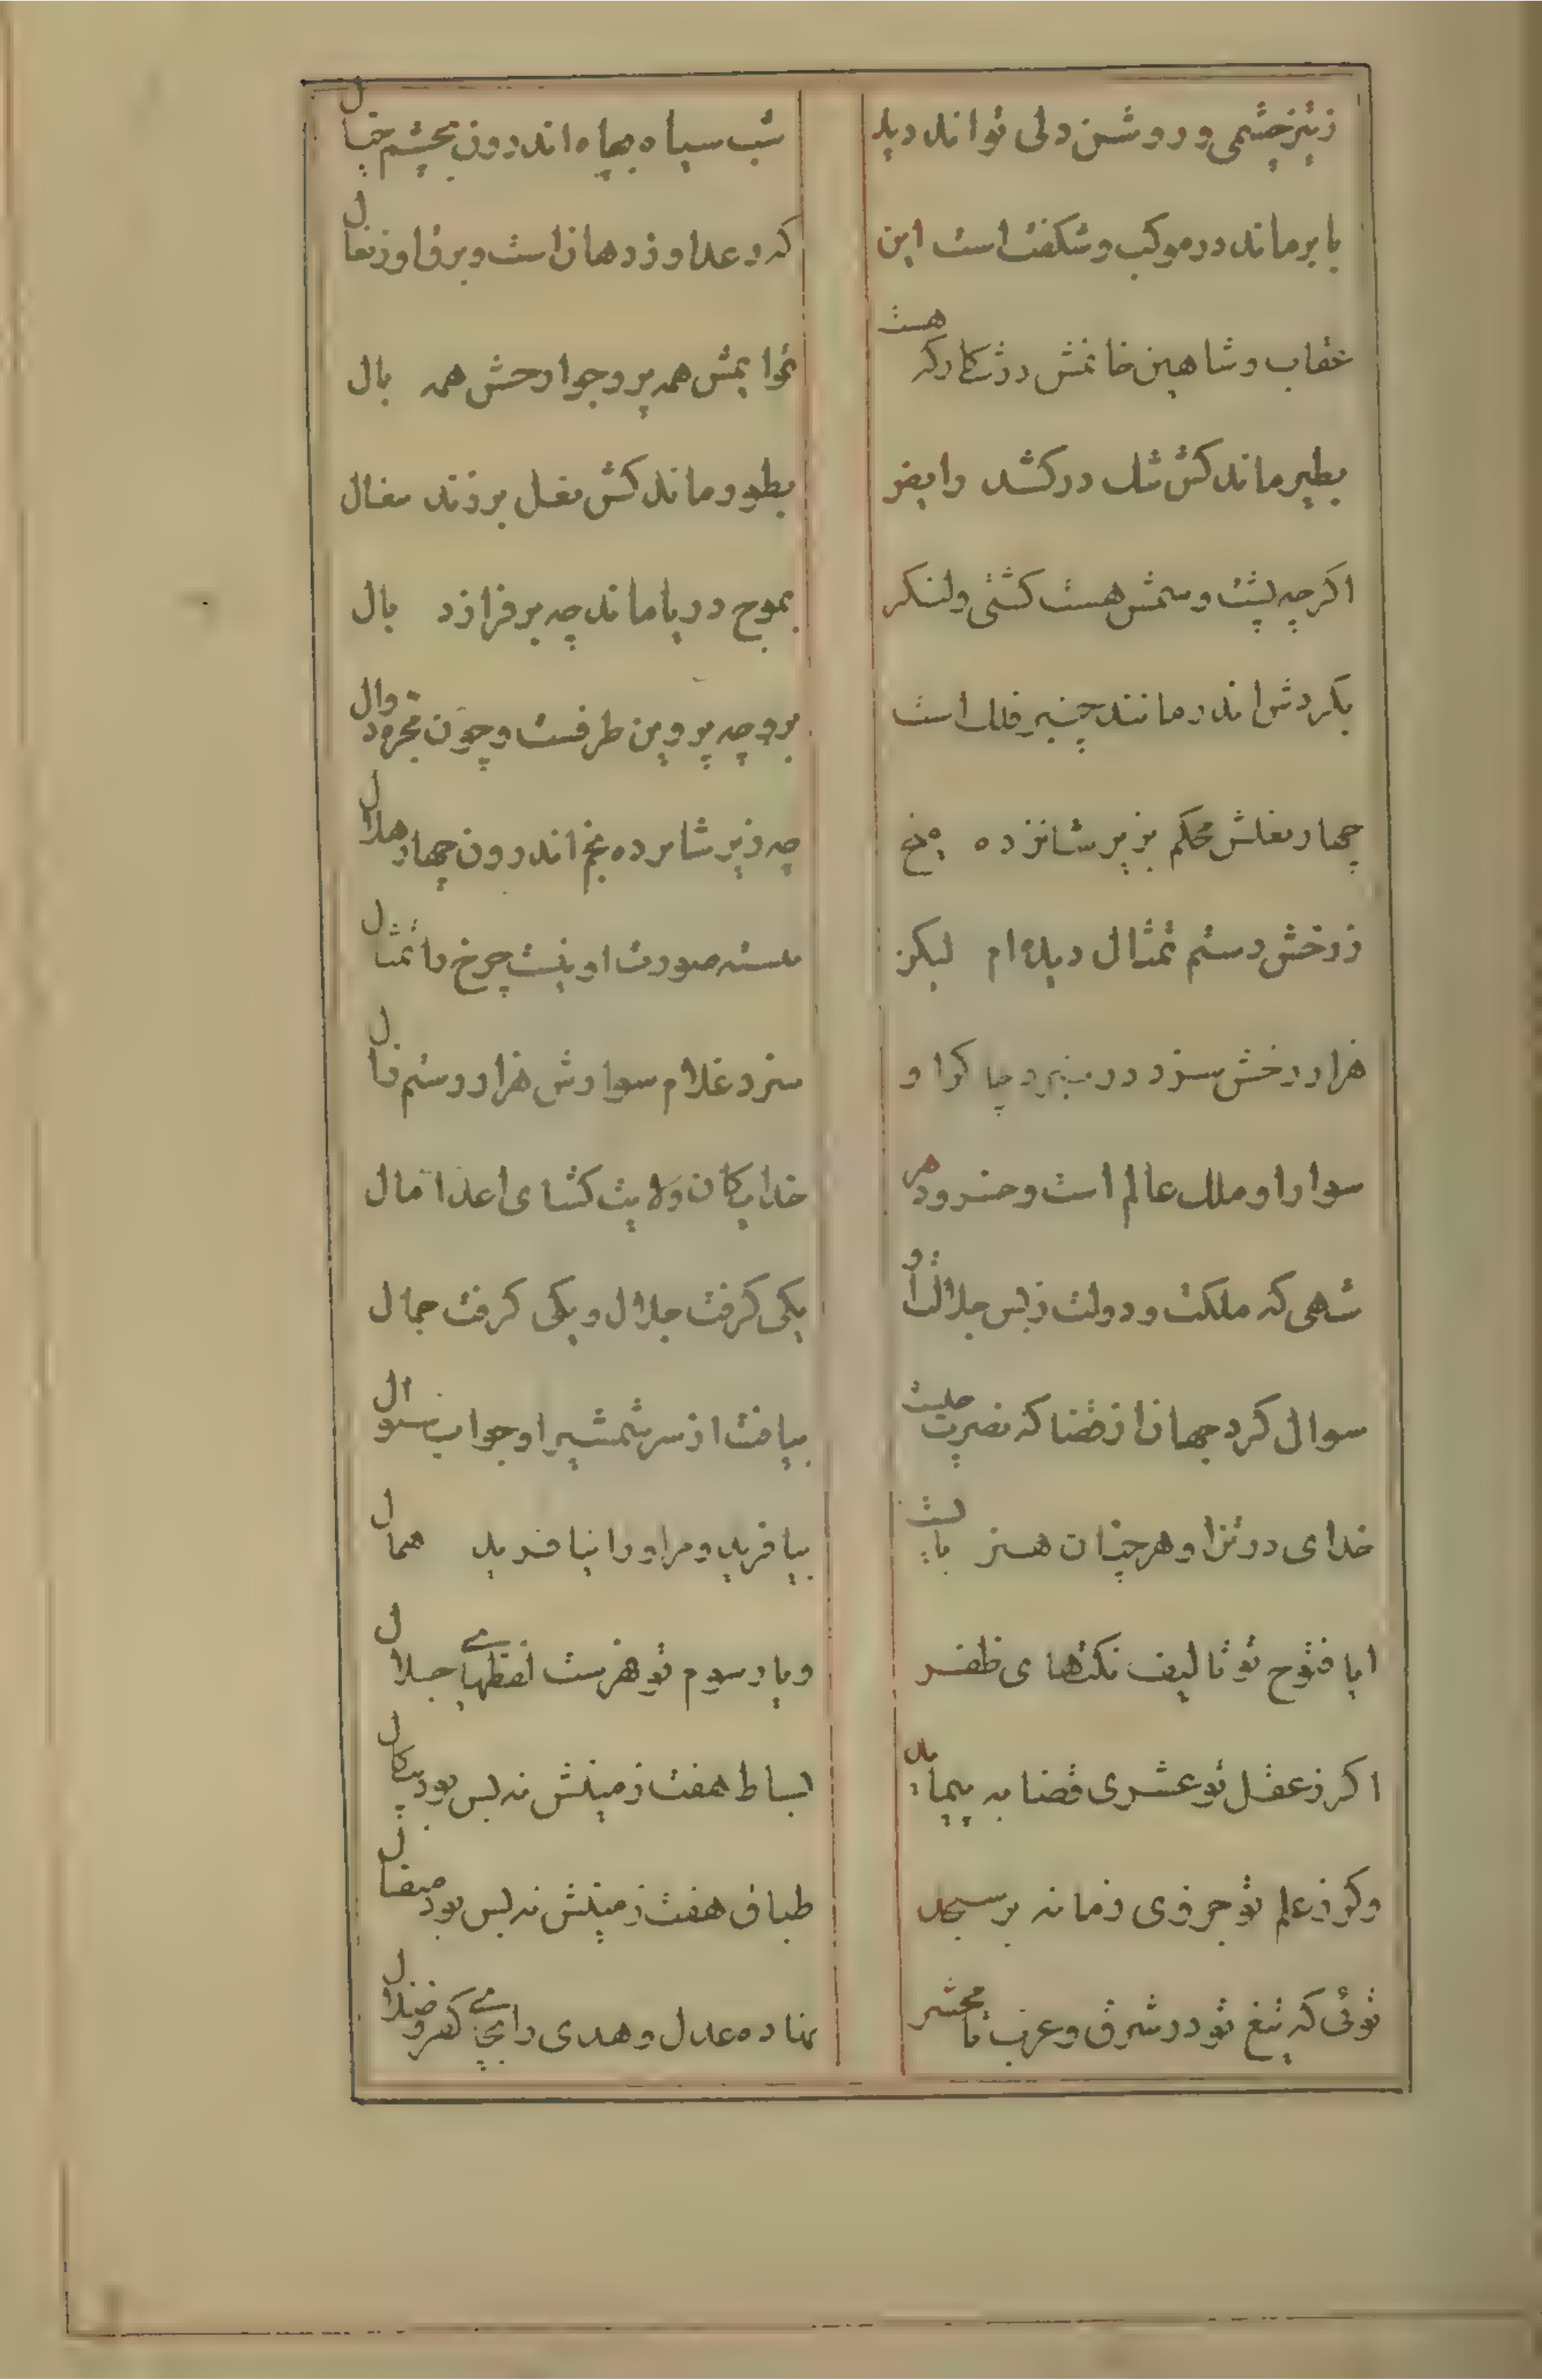 زتیزچشمی و روشن دلی تواند دید شب سیاه بچاه اندرون بچشم خیال
بابر ماند در موکب و شکفت است این که رعد او ز دهان است و برق او ز نعال
عقاب و شاهین خانمش در شکار که هست قوایمش همه پر و جوارحش همه بال
بطیر ماند کش شک در کشد رایض بطور ماند کش نعل برزند نعال
اکرچه پشت و سمش هست کشتی و لنکر بموج دریا ماند چه برفرازد بال
بکردش اندر مانند چنبر فلک است برو چه پروین طرفست و چون مجره دوال
چهار نعلش محکم بزیر شانزده میخ چه زیر شانزده نجم اندرون چهار هلال
ز رخش رستم تمثال دیده‌ام لیکن صورت او نیست چرخ را تمثال
هزار رخش سزد در نبرد چاکر او سزد غلام سوارش هزار رستم زال
سوار او ملک عالم است و خسرو دهر خدایکان ولایت کشای اعدا مال
شهی که ملکت و دولت ز بس جلالت او یکی کرفت جلال و یکی کرفت جمال
سوال کرد جهان از قضا که نصرت چیست بیافت از سر شمشیر او جواب سوال
خدای درتن او هر چنان هنر بایست بیافرید و مر او را نیافرید همال
ایا فتوح تو تالیف نکتهای ظفر ویا رسوم تو فهرست لفظهای جلال
اکر ز عقل تو عشری قضا به پیماید بساط هفت زمینش نه بس بود مکیال
وکر ز علم تو جزوی زمانه برسنجد طباق هفت زمینش نه بس بود مثقال
توئی که تیغ تو در شرق و غرب تا محشر نهاده عدل و هدی را بجای کفر و ضلال